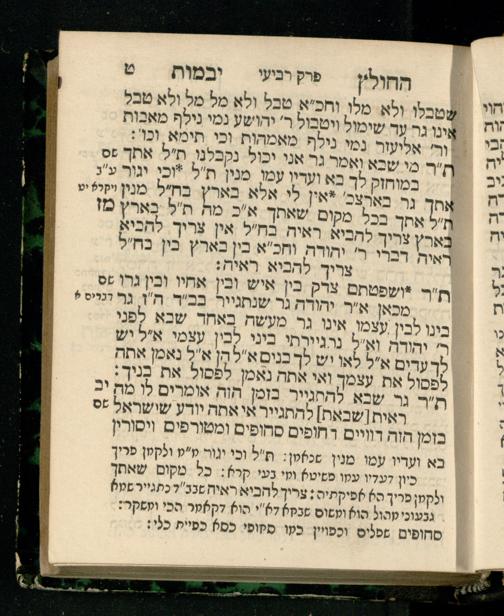 החולץ פרק רביעי יבמות ט
שטבלו ולא מלו וחכ"א טבל ולא מל מל ולא טבל
אינו גר עד שימול ויטבול ר' יהושע נמי נילף מאבות
ור' אליעזר נמי נילף מאמהות וכי תימא וכו':
ת"ר מי שבא ואמר גר אני יכול נקבלנו ת"ל אתך שם
במוחזק לך בא ועדיו עמו מנין ת"ל *וכי יגור ע"ב
אתך גר בארצכ' *אין לי אלא בארץ בח"ל מנין ויקרא יט
ת"ל אתך בכל מקום שאתך א"כ מה ת"ל בארץ מז
בארץ צריך להביא ראיה בח"ל אין צריך להביא
ראיה דברי ר' יהודה וחכ"א בין בארץ בין בח"ל
צריך להביא ראיה:
ת"ר *ושפטתם צדק בין איש ובין אחיו ובין גרו שם
מכאן א"ר יהודה גר שנתגייר בב"ד ה"ז גר דברים א
בינו לבין עצמו אינו גר מעשה באחד שבא לפני
ר' יהודה וא"ל נתגיירתי ביני לבין עצמי א"ל יש
לך עדים א"ל לאו יש לך בנים א"ל הן א"ל נאמן אתה
לפסול את עצמך ואי אתה נאמן לפסול את בניך:
ת"ר גר שבא להתגייר בזמן הזה אומרים לו מה יב
ראית [שבאת] להתגייר אי אתה יודע שישראל שם
בזמן הזה דווים דחופים סחופים ומטורפים ויסורין
בא ועדיו עמו מנין שנאמן: ת"ל וכי יגור מ"מ ולקמן פריך
כיון דעדיו עמו פשיטא ומי בעי קרא: כל מקום שאתך
ולקמן פריך הא אפיקתיה: צריך להביא ראיה שבב"ד נתגייר שמא
גבעוני מהול הוא ומשום
סחופים שפלים וכפויין כמו סחופי כסא כפיית כלי: